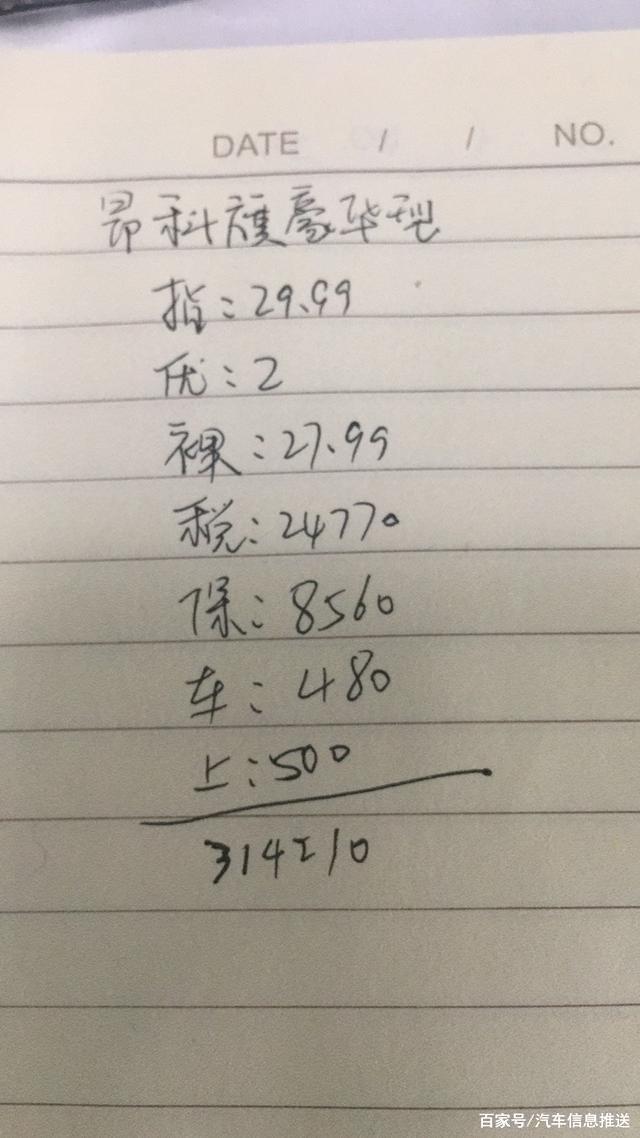 DATE / / NO.
昂科旗豪华型
指：29.99
优：2
裸：27.99
税：24770
保：8560
车：480
上：500
314210
百家号/汽车信息推送